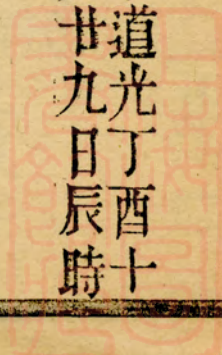 道光丁酉十
廿九日辰時